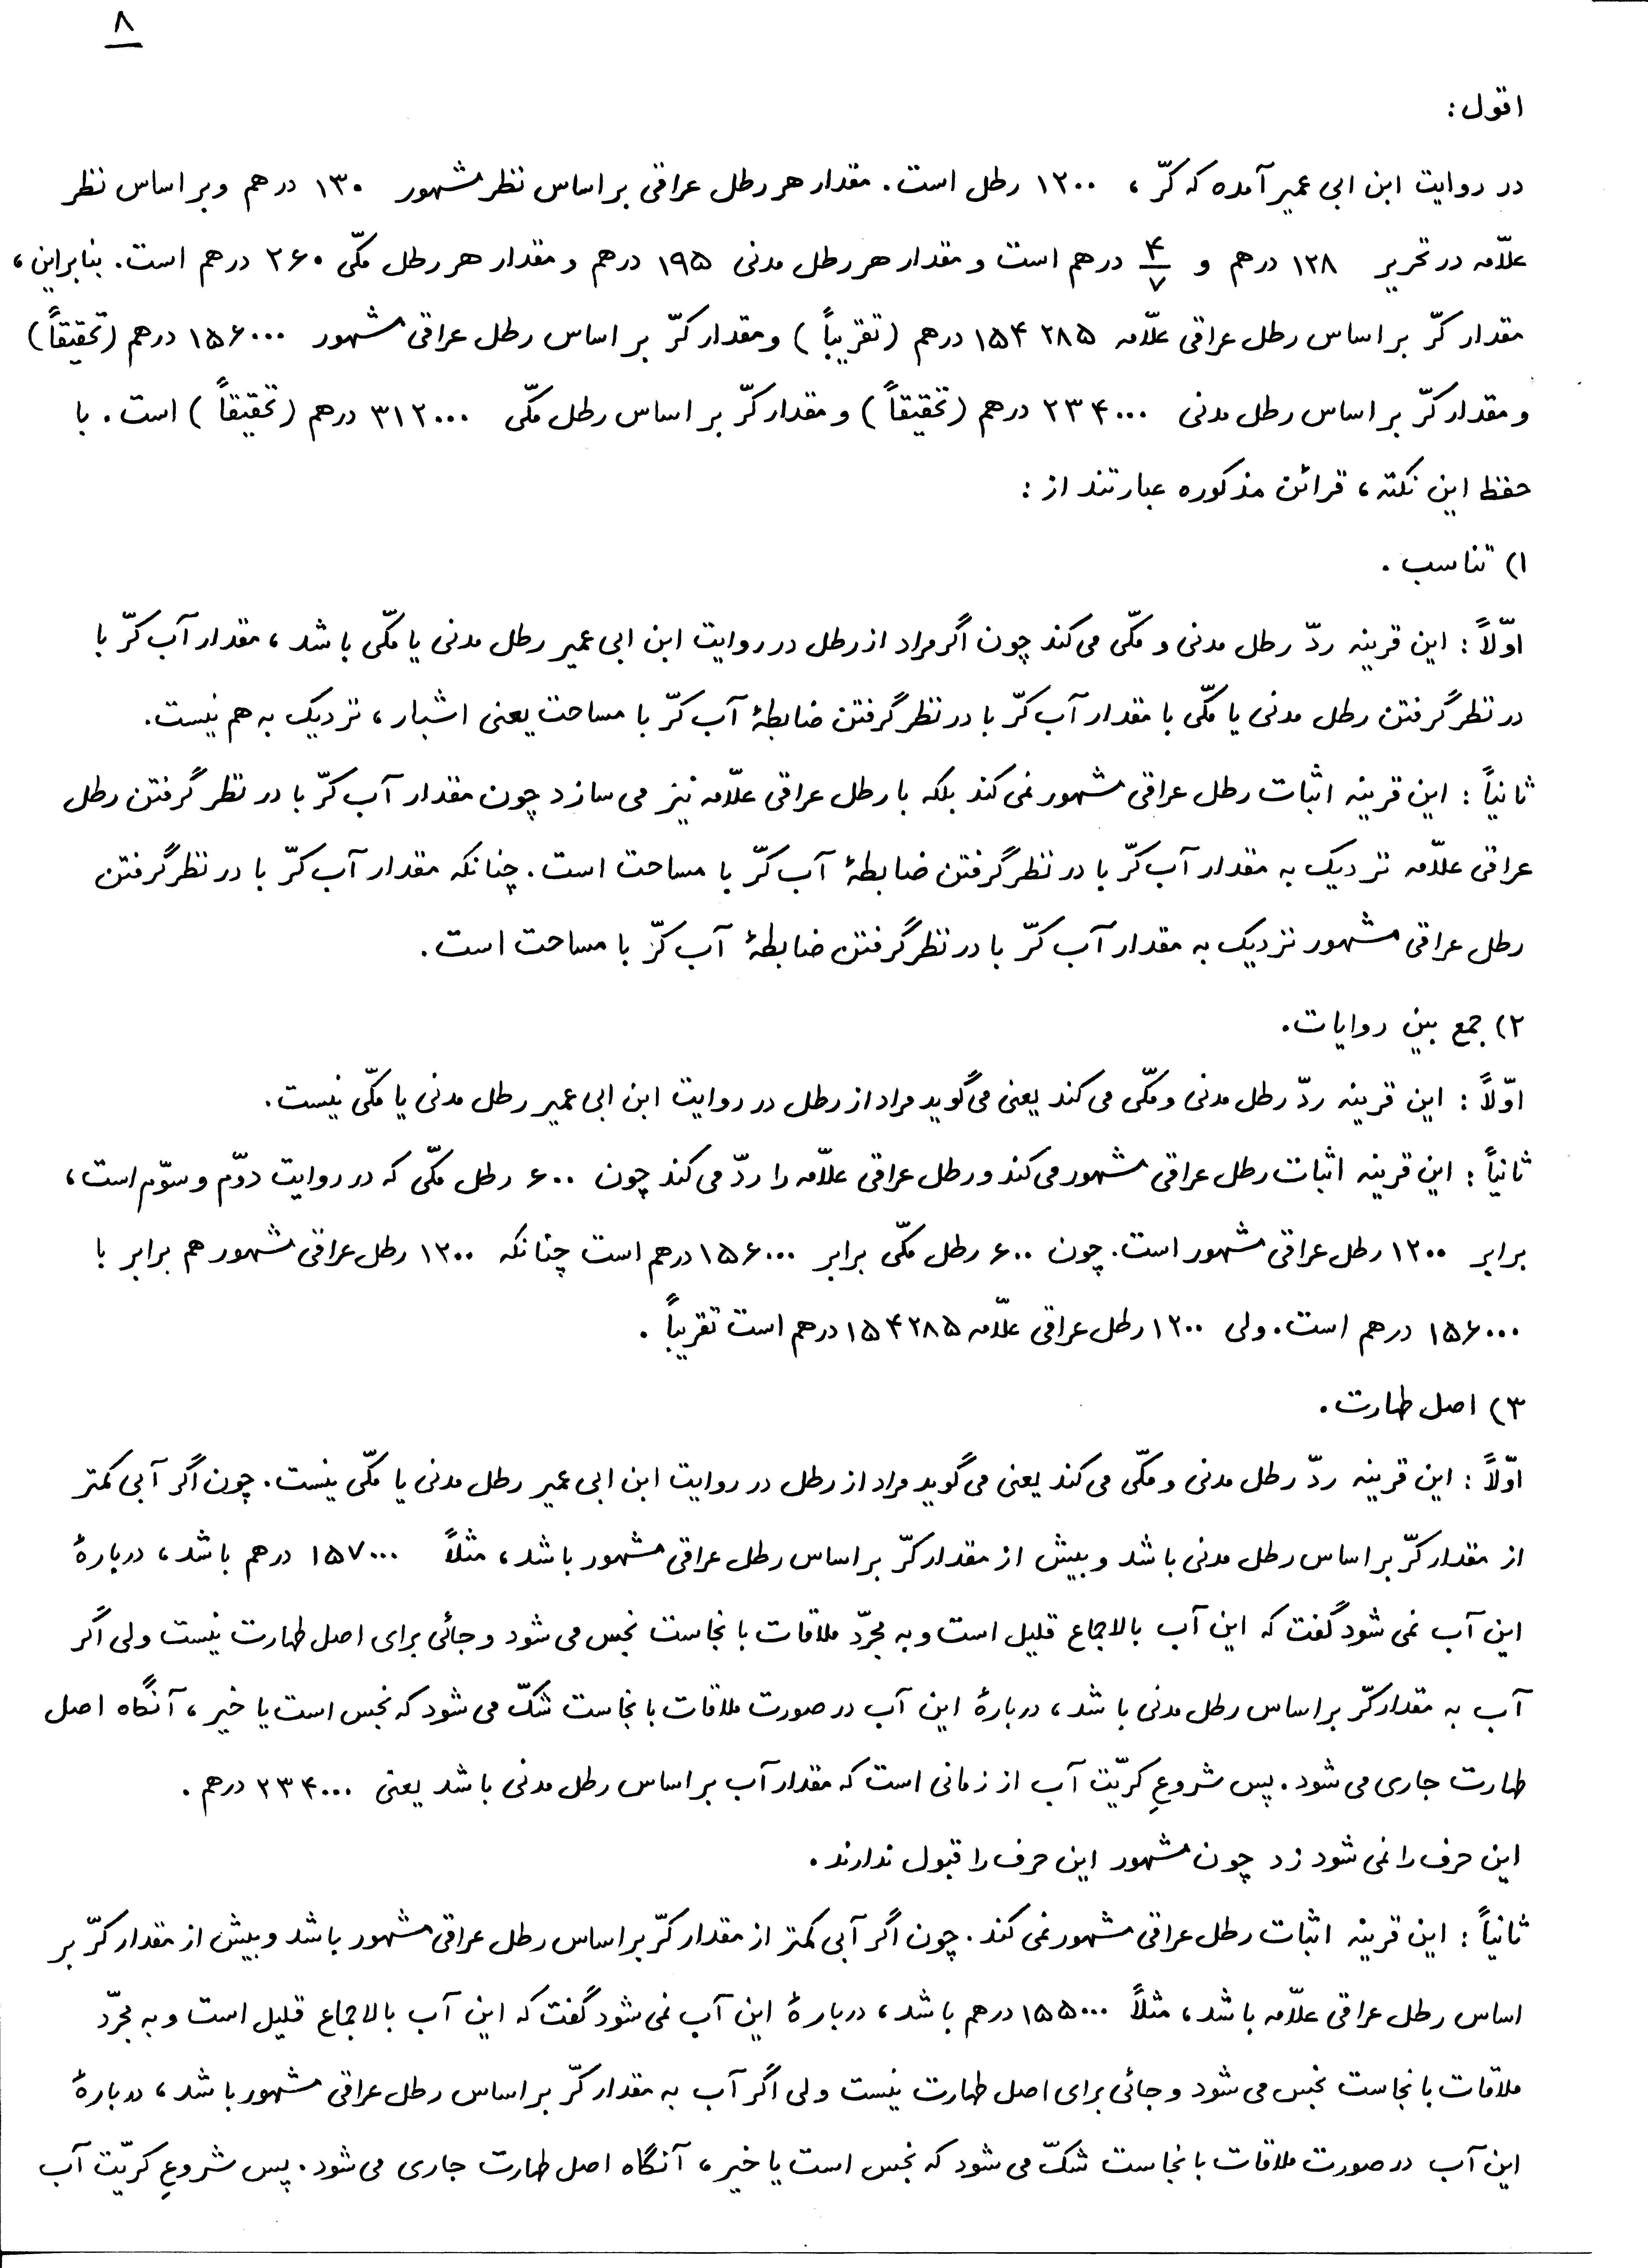 ۸
اقول:
در روایت ابن ابی عمیر آمده که کرّ ، ۱۲۰۰ رطل است. مقدار هر رطل عراقی بر اساس نظر مشهور ۱۳۰ درهم و بر اساس نظر
علّامه در تحریر ۱۲۸ درهم و ۴/۷ درهم است و مقدار هر رطل مدنی ۱۹۵ درهم و مقدار هر رطل مکّی ۲۶۰ درهم است. بنابراین ،
مقدار کرّ بر اساس رطل عراقی علّامه ۱۵۴۲۸۵ درهم (تقریباً) و مقدار کرّ بر اساس رطل عراقی مشهور ۱۵۶۰۰۰ درهم (تحقیقاً)
و مقدار کرّ بر اساس رطل مدنی ۲۳۴۰۰۰ درهم (تحقیقاً) و مقدار کرّ بر اساس رطل مکّی ۳۱۲۰۰۰ درهم (تحقیقاً) است. با
حفظ این نکته ، قرائن مذکوره عبارتند از :
۱) تناسب .
اوّلاً : این قرینه ردّ رطل مدنی و مکّی می کند چون اگر مراد از رطل در روایت ابن ابی عمیر رطل مدنی یا مکّی باشد ، مقدار آب کرّ با
در نظر گرفتن رطل مدنی یا مکّی با مقدار آب کرّ با در نظر گرفتن ضابطۀ آب کرّ با مساحت یعنی اشبار ، نزدیک به هم نیست.
ثانیاً : این قرینه اثبات رطل عراقی مشهور نمی کند بلکه با رطل عراقی علّامه نیز می سازد چون مقدار آب کرّ با در نظر گرفتن رطل
عراقی علّامه نزدیک به مقدار آب کرّ با در نظر گرفتن ضابطۀ آب کرّ با مساحت است. چنانکه مقدار آب کرّ با در نظر گرفتن
رطل عراقی مشهور نزدیک به مقدار آب کرّ با در نظر گرفتن ضابطۀ آب کرّ با مساحت است.
۲) جمع بین روایات.
اوّلاً : این قرینه ردّ رطل مدنی و مکّی می کند یعنی می گوید مراد از رطل در روایت ابن ابی عمیر رطل مدنی یا مکّی نیست.
ثانیاً : این قرینه اثبات رطل عراقی مشهور می کند و رطل عراقی علّامه را ردّ می کند چون ۶۰۰ رطل مکّی که در روایت دوّم و سوّم است ،
برابر ۱۲۰۰ رطل عراقی مشهور است. چون ۶۰۰ رطل مکّی برابر ۱۵۶۰۰۰ درهم است چنانکه ۱۲۰۰ رطل عراقی مشهور هم برابر با
۱۵۶۰۰۰ درهم است. ولی ۱۲۰۰ رطل عراقی علّامه ۱۵۴۲۸۵ درهم است تقریباً .
۳) اصل طهارت .
اوّلاً : این قرینه ردّ رطل مدنی و مکّی می کند یعنی می گوید مراد از رطل در روایت ابن ابی عمیر رطل مدنی یا مکّی نیست. چون اگر آبی کمتر
از مقدار کرّ بر اساس رطل مدنی باشد و بیش از مقدار کرّ بر اساس رطل عراقی مشهور باشد ، مثلاً ۱۵۷۰۰۰ درهم باشد ، دربارۀ
این آب نمی شود گفت که این آب بالاجماع قلیل است و به مجرّد ملاقات با نجاست نجس می شود و جائی برای اصل طهارت نیست ولی اگر
آب به مقدار کرّ بر اساس رطل مدنی باشد ، دربارۀ این آب در صورت ملاقات با نجاست شکّ می شود که نجس است یا خیر ، آنگاه اصل
طهارت جاری می شود. پس شروعِ کریّت آب از زمانی است که مقدار آب بر اساس رطل مدنی باشد یعنی ۲۳۴۰۰۰ درهم .
این حرف را نمی شود زد چون مشهور این حرف را قبول ندارند .
ثانیاً : این قرینه اثبات رطل عراقی مشهور نمی کند. چون اگر آبی کمتر از مقدار کرّ بر اساس رطل عراقی مشهور باشد و بیش از مقدار کرّ بر
اساس رطل عراقی علّامه باشد ، مثلاً ۱۵۵۰۰۰ درهم باشد ، دربارۀ این آب نمی شود گفت که این آب بالاجماع قلیل است و به مجرّد
ملاقات با نجاست نجس می شود و جائی برای اصل طهارت نیست ولی اگر آب به مقدار کرّ بر اساس رطل عراقی مشهور باشد ، دربارۀ
این آب در صورت ملاقات با نجاست شکّ می شود که نجس است یا خیر ، آنگاه اصل طهارت جاری می شود. پس شروعِ کریّت آب